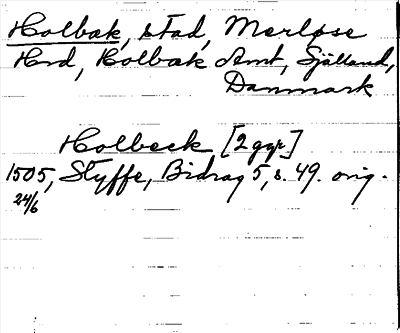 Holbæk, stad, Merløse
Hrd, Holbæk Amt, Sjælland,
Danmark
Holbeck [2 ggr]
1505, Styffe, Bidrag 5, s. 49. orig.
24/6